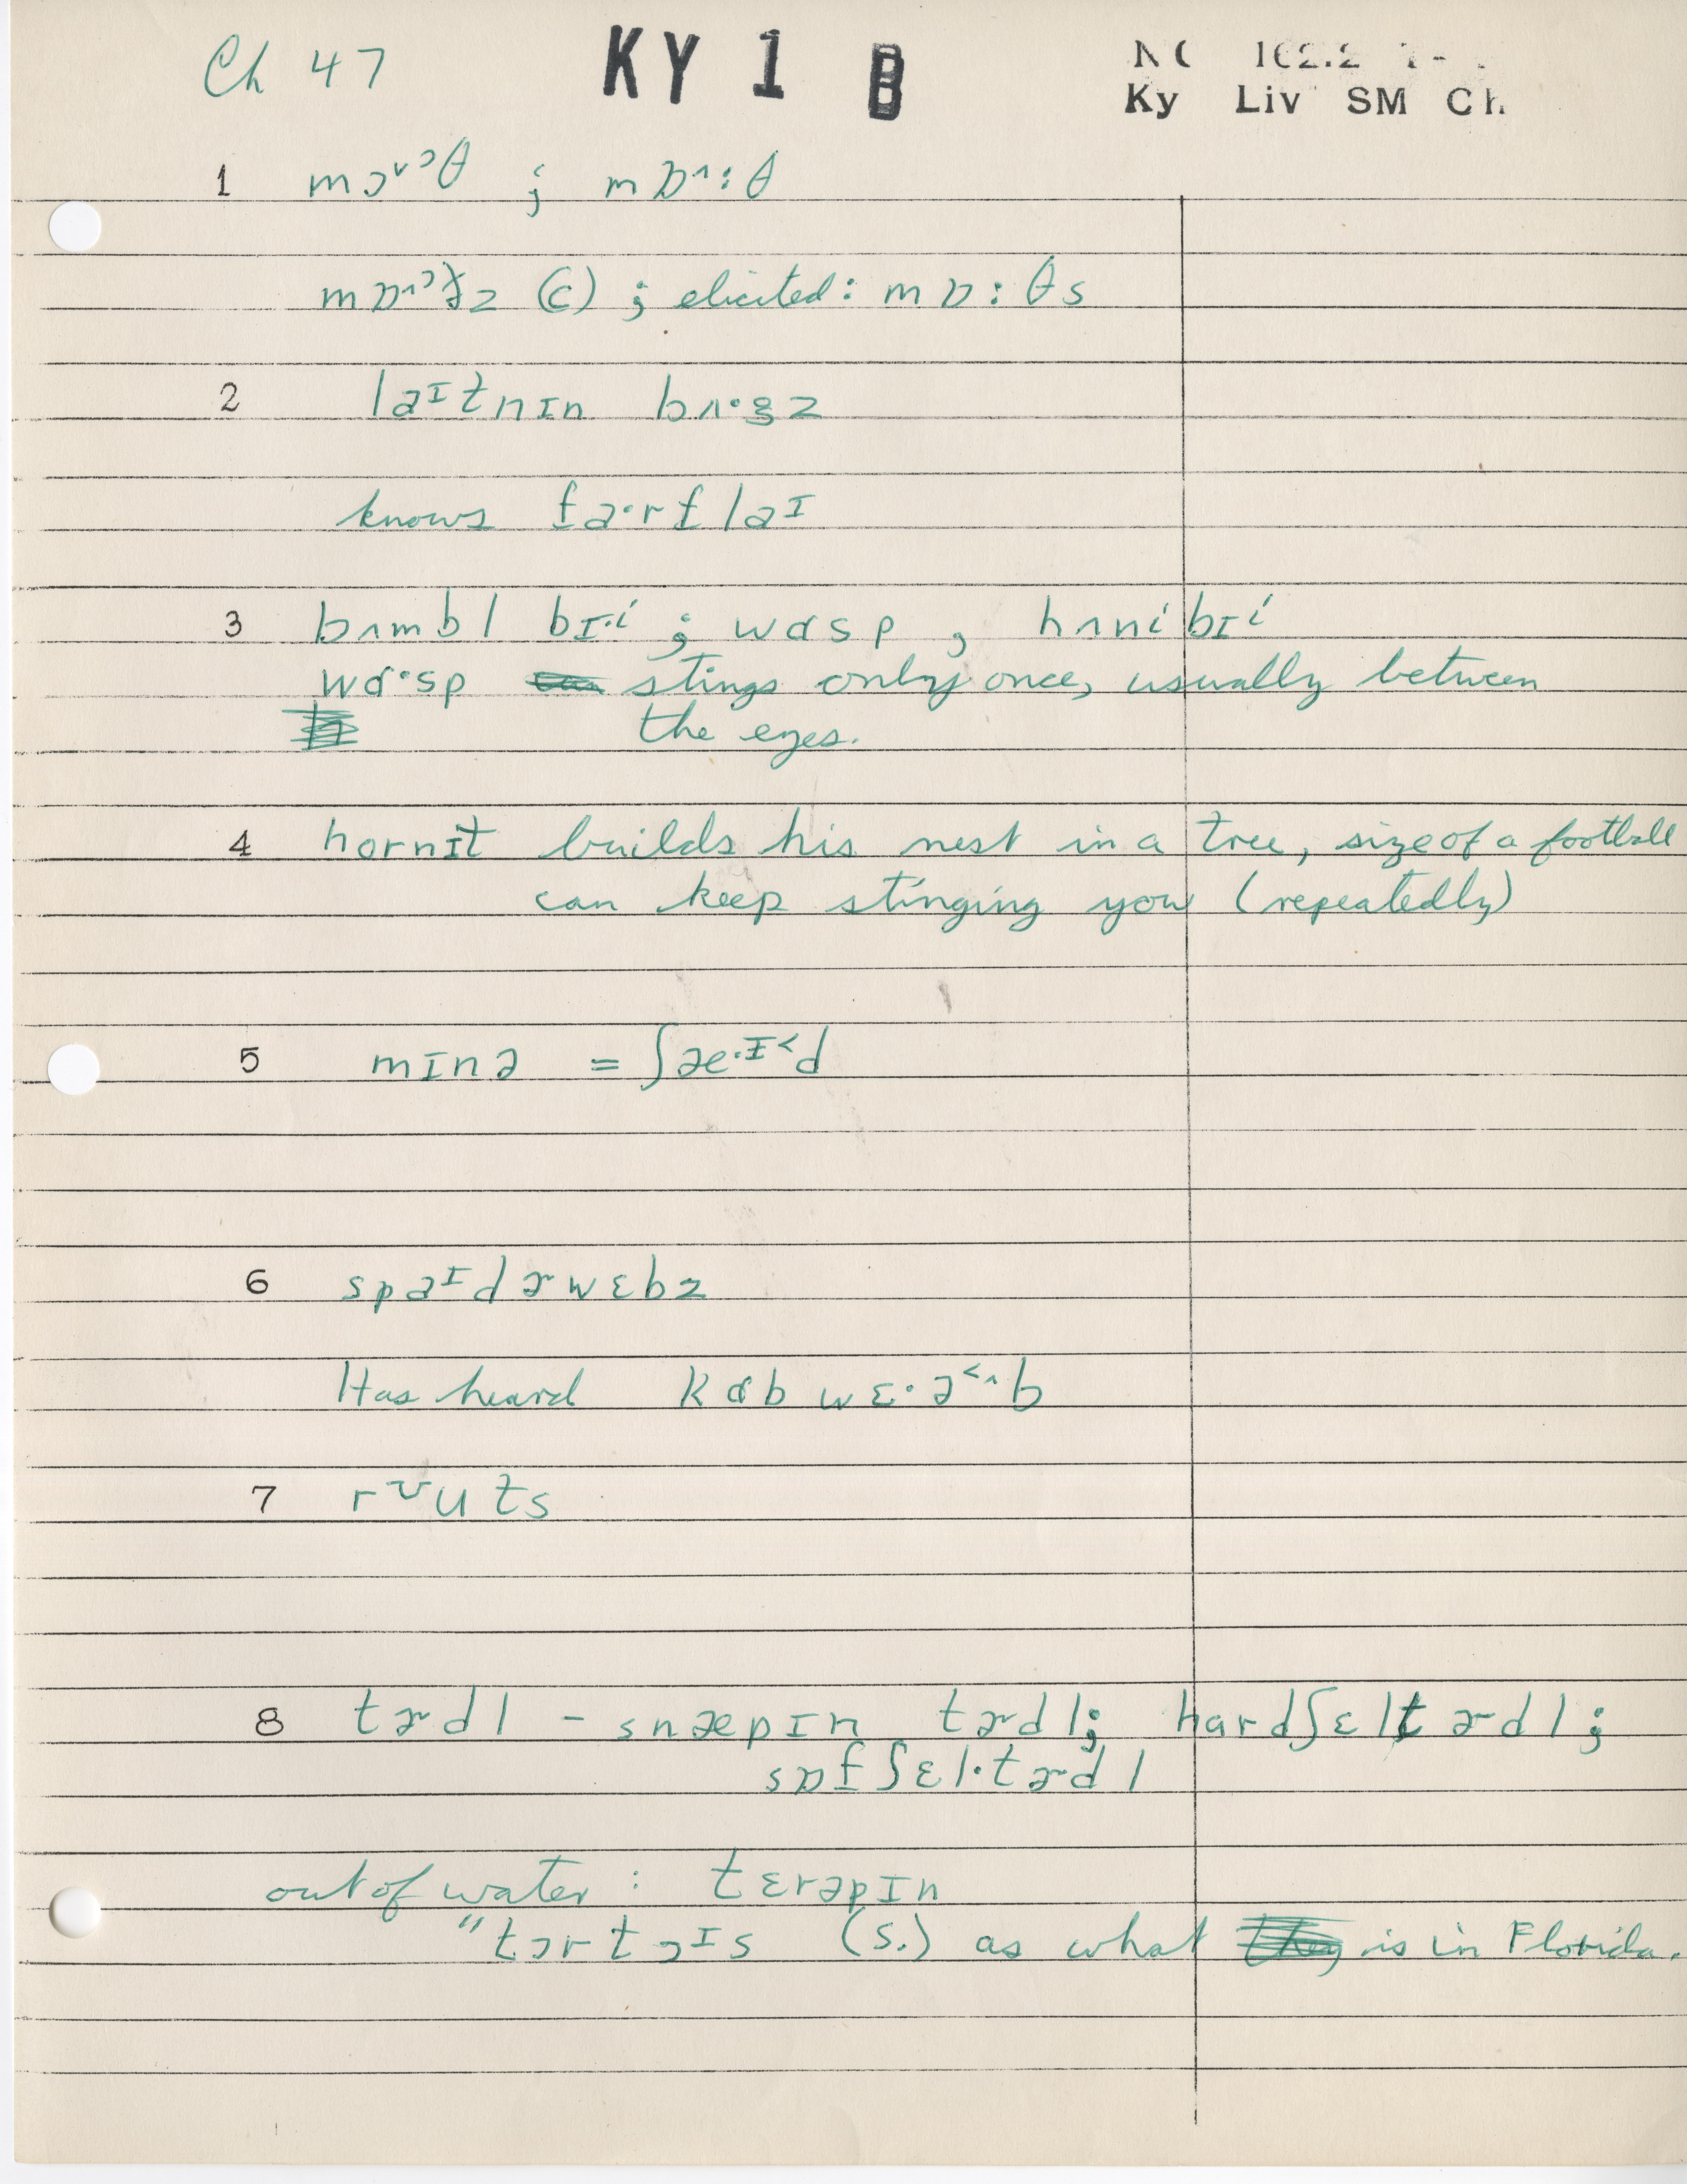 Ch 47 KY 1 B
Ky Liv SM Ch
1 mɔ˅ɔθ ; mɒ^:θ
(c) ; elicited: mɒ:θs
2 laɪtnɪn bʌ·gz
knows fa·rflaɪ
3 bʌmbl bɪ·i ; wɑsp , hʌnibɪi
wɑ·sp stings only once, usually between
the eyes.
4 hornɪt builds his nest in a tree, size of a football
can keep stinging you (repeatedly)
5 mɪnə = ʃæ·ɪ˂d
6 spaɪdɚwɛbz
Has heard kɑbwɛ·ə˂^b
7 rʊuts
8 tɚdl – snæpɪn tɚdl; hardʃɛltɚdl;
sɒfʃɛl·tɚdl
out of water : tɛrəpɪn
"tɔrtɔɪs (s.) as what is in Florida.